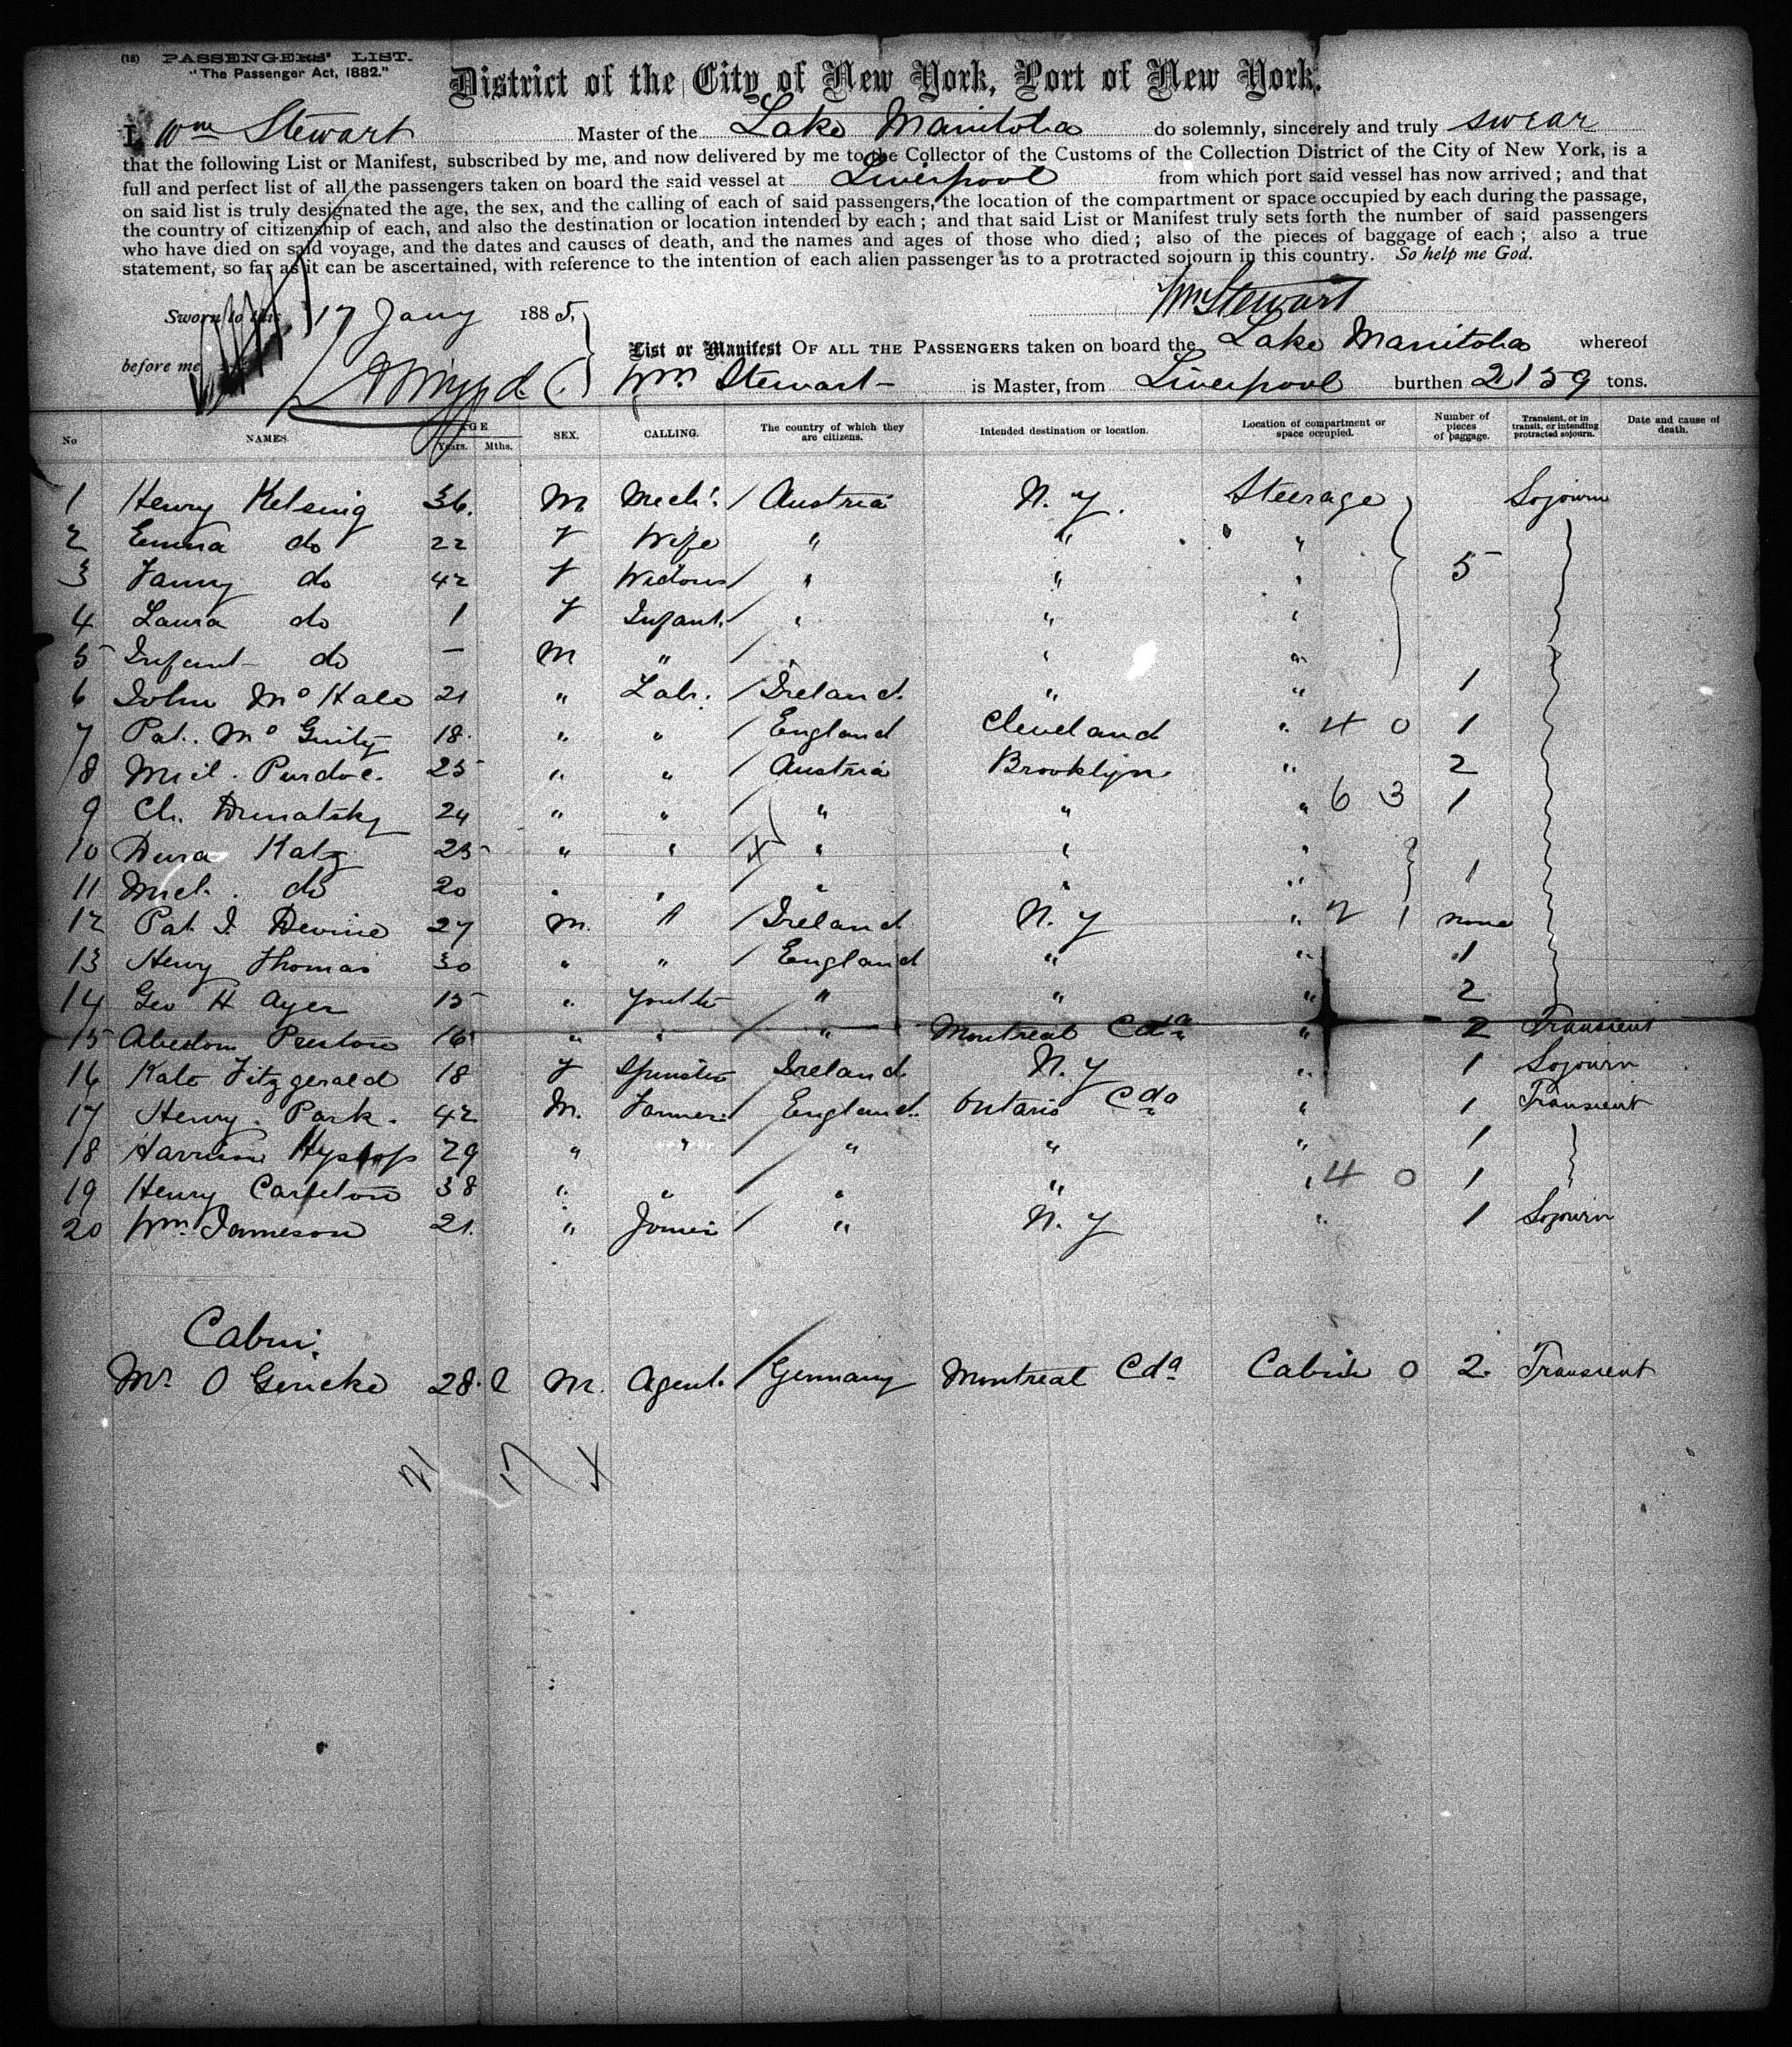 (18) PASSENGERS' LIST.
"The Passenger Act, 1882."
District of the City of New York, Port of New York.
I, Wm Stewart Master of the Lake Manitoba do solemnly, sincerely and truly swear
that the following List or Manifest, subscribed by me, and now delivered by me to the Collector of the Customs of the Collection District of the City of New York, is a
full and perfect list of all the passengers taken on board the said vessel at Liverpool from which port said vessel has now arrived; and that
on said list is truly designated the age, the sex, and the calling of each of said passengers, the location of the compartment or space occupied by each during the passage,
the country of citizenship of each, and also the destination or location intended by each; and that said List or Manifest truly sets forth the number of said passengers
who have died on said voyage, and the dates and causes of death, and the names and ages of those who died; also of the pieces of baggage of each; also a true
statement, so far as it can be ascertained, with reference to the intention of each alien passenger as to a protracted sojourn in this country. So help me God.
Wm Stewart
Sworn to this 17 Jany 1885,
before me
List or Manifest OF ALL THE PASSENGERS taken on board the Lake Manitoba whereof
Wm. Stewart is Master, from Liverpool burthen 2159 tons.
No NAMES. AGE Years. Mths. SEX. CALLING. The country of which they are citizens. Intended destination or location. Location of compartment or space occupied. Number of pieces of baggage. Transient, or in transit, or intending protracted sojourn. Date and cause of death.
1 Henry Kelsing 36. M Mech. / Austria N.Y. Steerage Sojourn
2 Emma do 22 F Wife " " "
3 Fanny do 42 F Widow / " " " 5
4 Laura do 1 F Infant. / " " "
5 Infant do — M " / " " "
6 John McHale 21 " Lab. / Ireland. " " 1
7 Pat. McGuity 18. " " / England Cleveland " 4 0 1
8 Mich. Purdoe. 25 " " / Austria Brooklyn " 2
9 Ch. 24 " " / " " " 6 3 1
10 Katz 25 " " / X " " "
11 Mich. do 20 " " / " " " 1
12 Pat. J. Devine 27 M. " / Ireland N.Y " 2 1 none
13 Henry Thomas 30 " " / England " " 1
14 Geo H Ayer 15 " Youth " " " 2
15 Preston 16 " " / " Montreal Cda " 2 Transient
16 Kate Fitzgerald 18 F Spinster Ireland N.Y " 1 Sojourn
17 Henry. Park. 42 M. Farmer / England. Ontario Cda " 1 Transient
18 Harrison Hyslop 29 " " / " " " 1
19 Henry Carleton 38 " " / " " " 4 0 1
20 Wm. Jameson 21. " Joiner / " N.Y " 1 Sojourn
Cabin.
Mr O Gericke 28. M. Agent. / Germany Montreal Cda Cabin 0 2. Transient
21 17 X